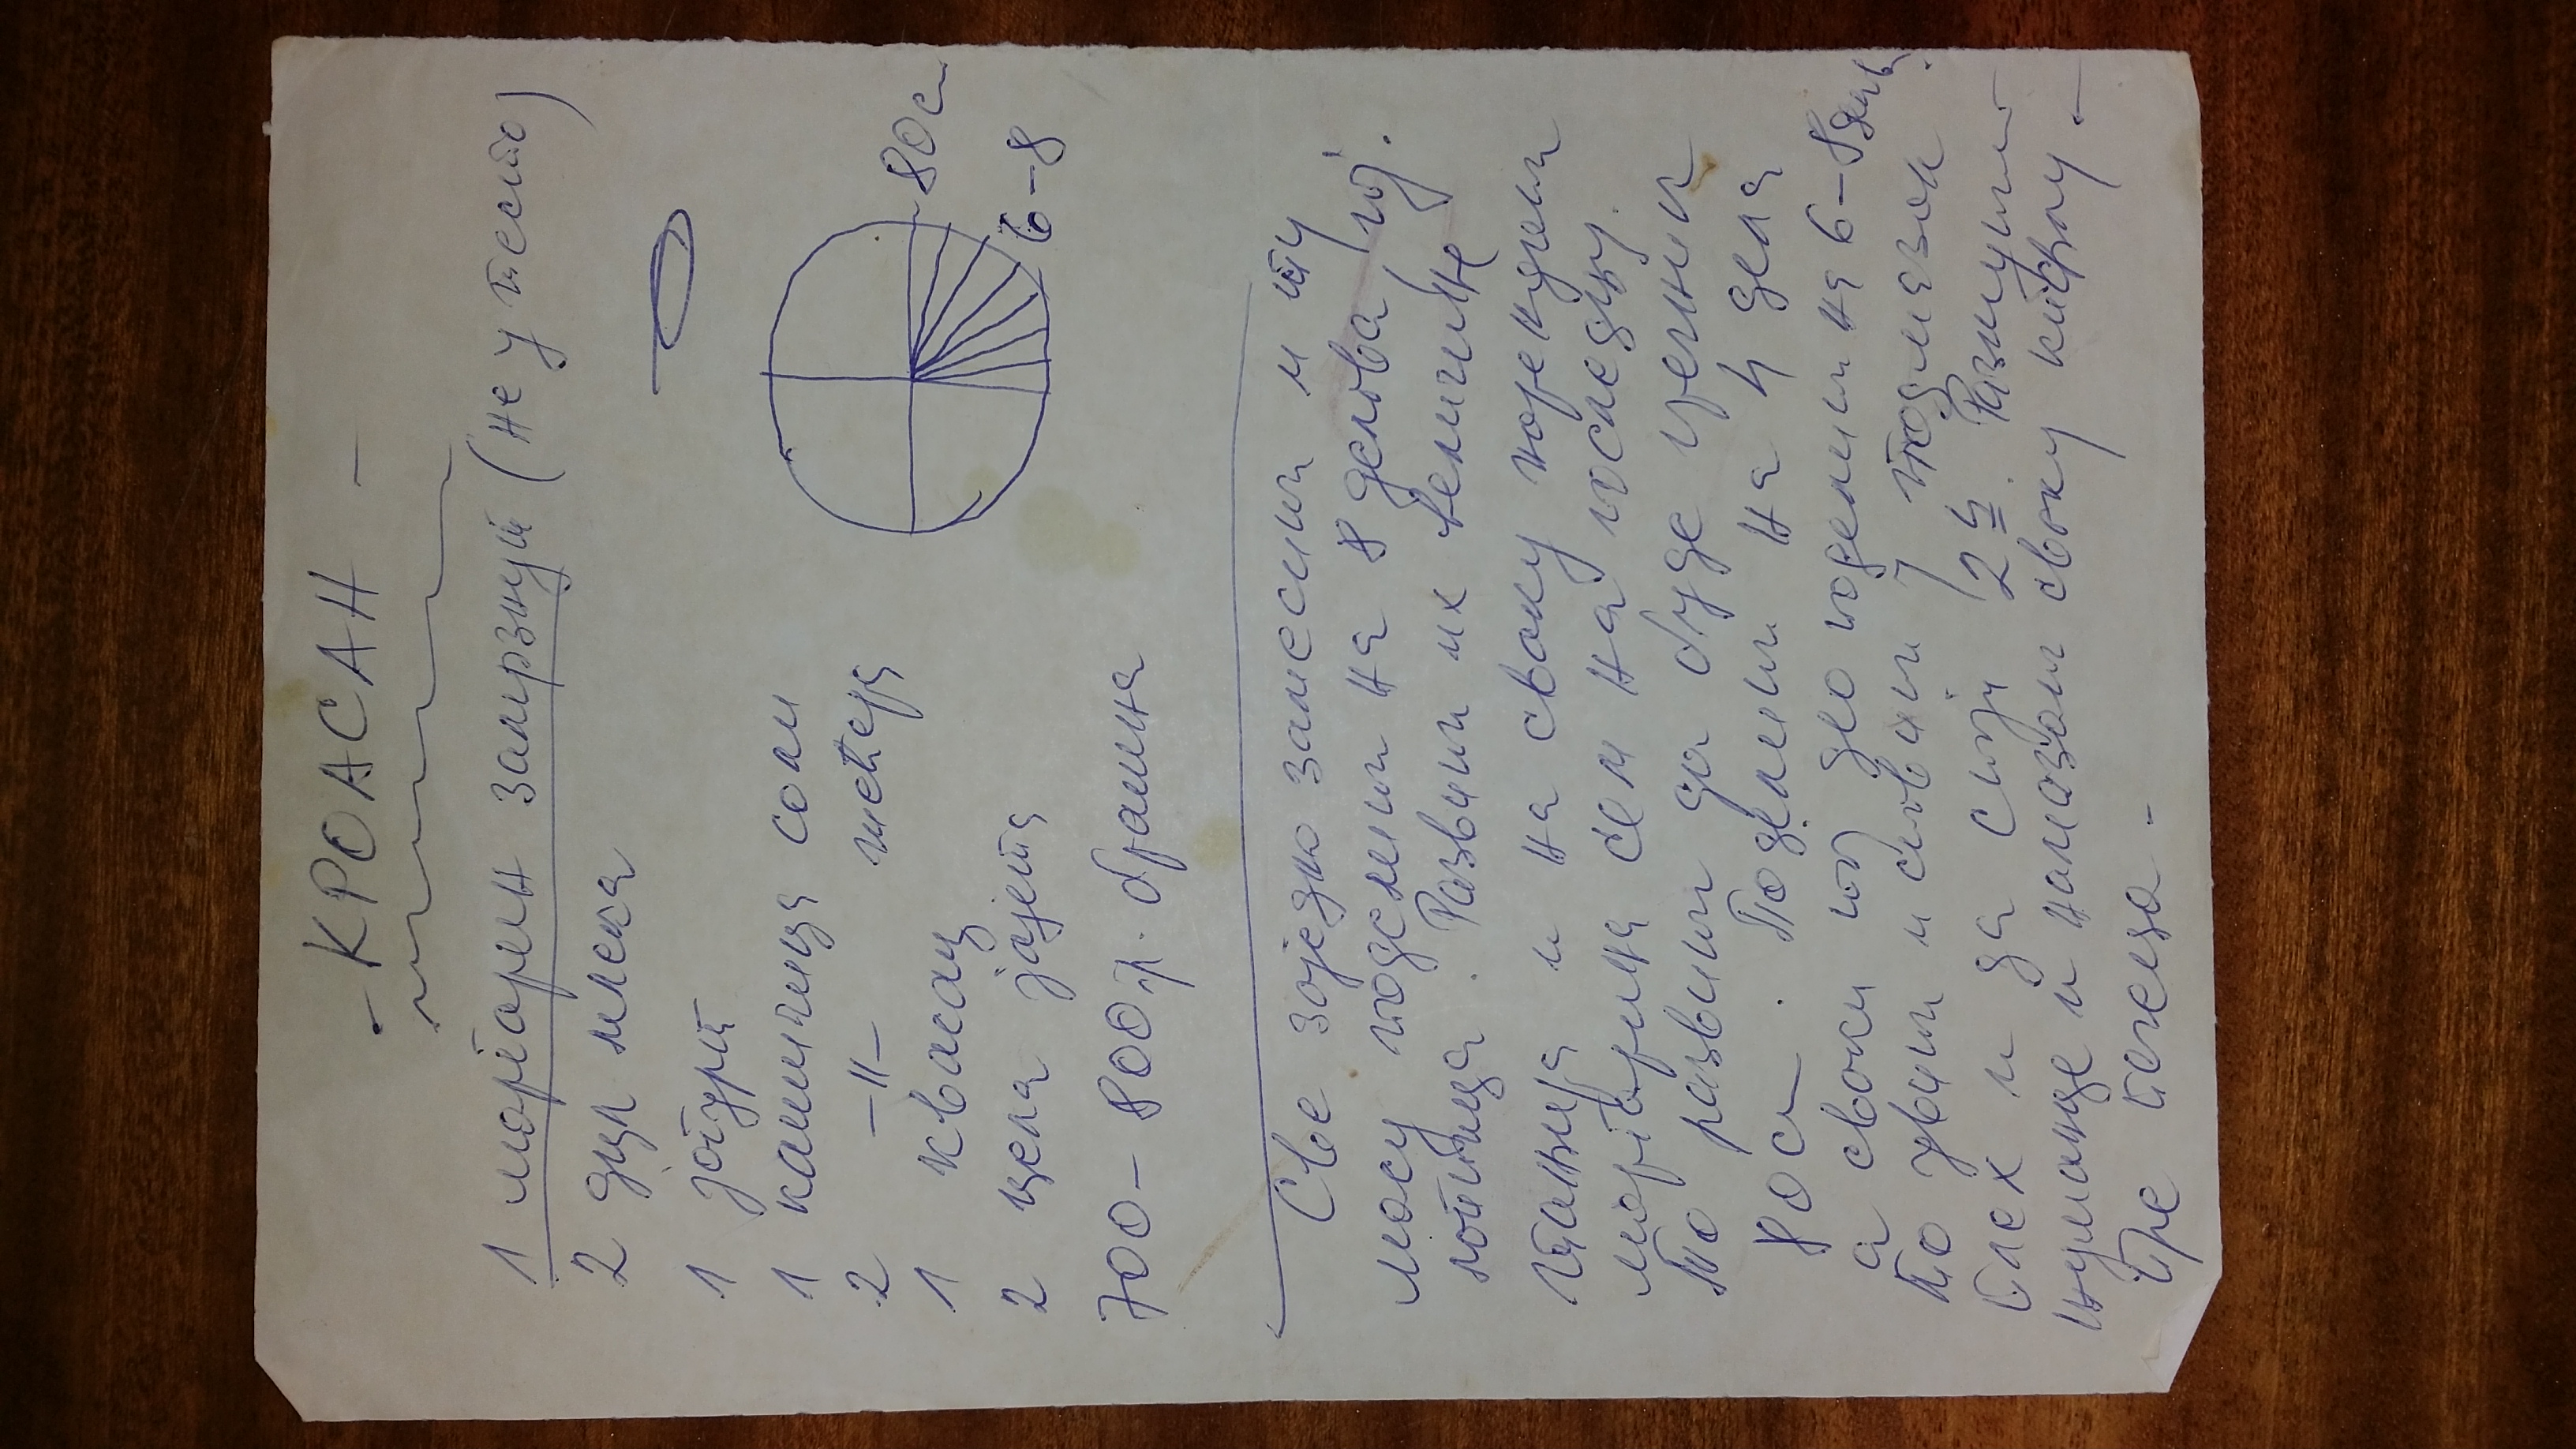 - КРОАСАН -
1 маргарин замрзнут (не у тесто)
2 дцл млека
1 јогурт
1 кашичица соли
2 -||- шећера
1 квасац
2 цела јајета
700-800 гр. брашна
80 cm
6-8
Све заједно замесити и ту
масу поделити на 8 делова, тј.
лоптица. Развити их величине
тањира и на сваку нарендати
маргарина сем на последњу.
То развити да буде пречник
80 cm. Поделити на 4 дела
а сваки тај део поделити на 6-8 делова.
То увити и ставити у подмазан
плех и да стоји 2 h. Размутити
жуманце и намазати сваку кифлу -
Пре печења -